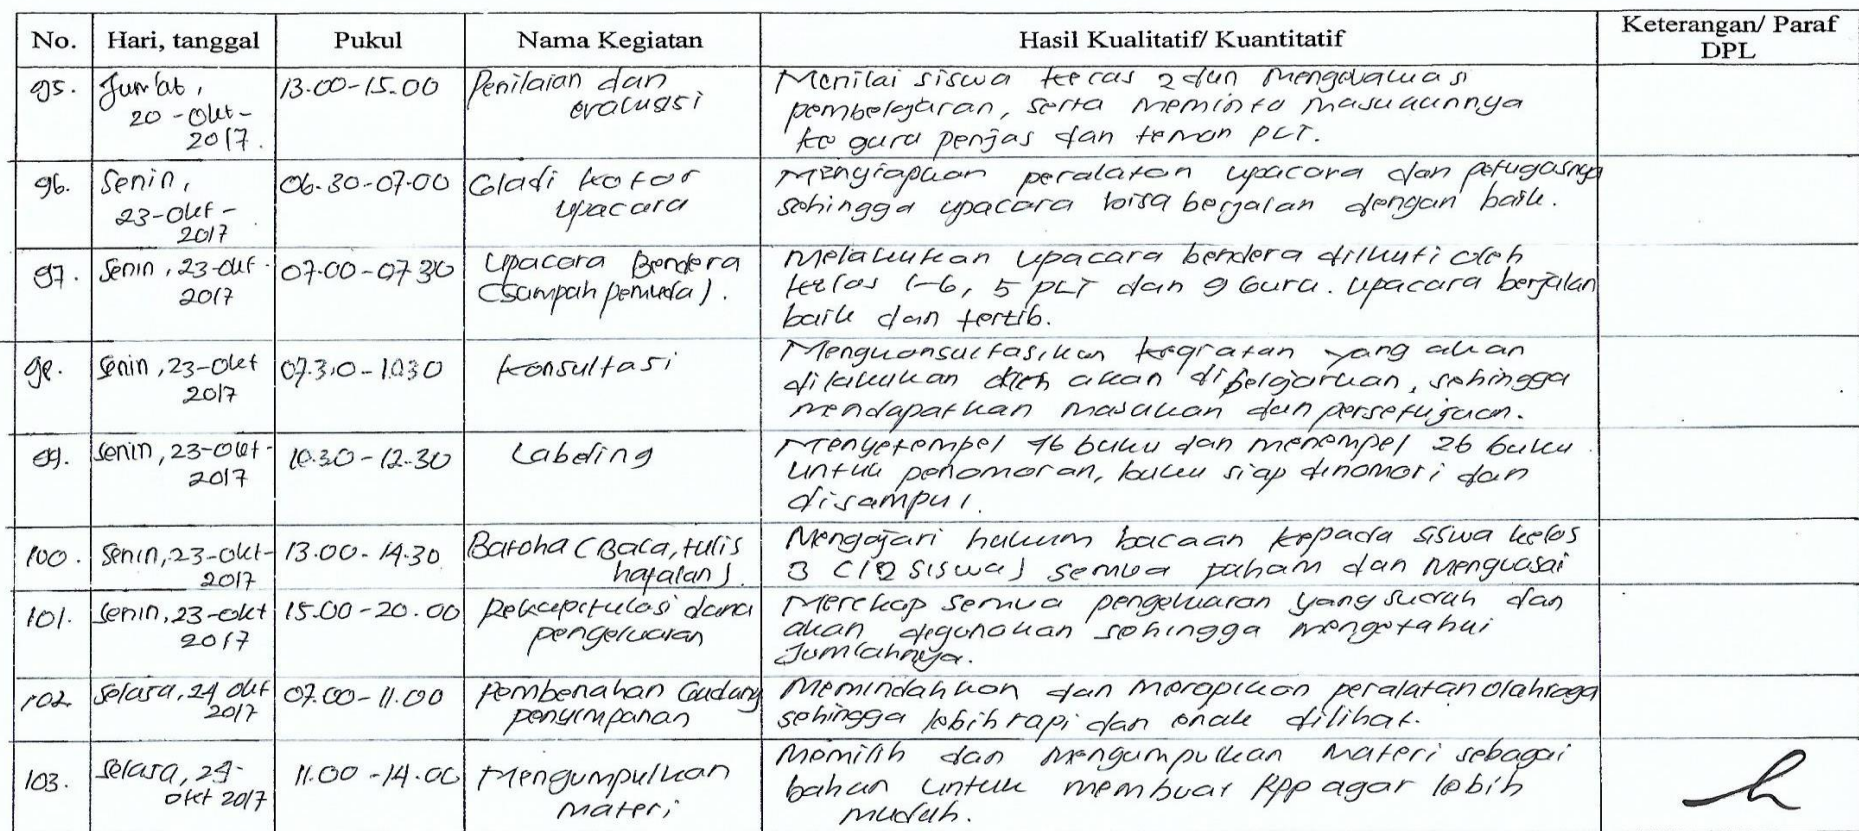 No. Hari, tanggal Pukul Nama Kegiatan Hasil Kualitatif/ Kuantitatif Keterangan/ Paraf
DPL
95. Jum'at, 13.00-15.00 Penilaian dan Menilai siswa kelas 2 dan mengevaluasi
20-Okt- evaluasi pembelajaran, serta meminta masukannya
2017. ke guru penjas dan teman PLT.
96. Senin, 06.30-07.00 Gladi kotor Menyiapkan peralatan upacara dan petugasnya
23-Okt- upacara sehingga upacara bisa berjalan dengan baik.
2017
97. Senin, 23-Okt- 07.00-07.30 Upacara Bendera Melakukan upacara bendera diikuti oleh
2017 (Sumpah pemuda). kelas 1-6, 5 PLT dan 9 Guru. Upacara berjalan
baik dan tertib.
98. Senin, 23-Okt 07.30-10.30 Konsultasi Mengkonsultasikan kegiatan yang akan
2017 dilakukan akan dipelajarkan, sehingga
mendapatkan masukan dan persetujuan.
99. Senin, 23-Okt- 10.30-12.30 Labeling Menyetempel 46 buku dan menempel 26 buku
2017 untuk penomoran, buku siap dinomori dan
disampul.
100. Senin, 23-Okt- 13.00-14.30 Batoha (Baca, tulis Mengajari hukum bacaan kepada siswa kelas
2017 hafalan). 3 (12 siswa) semua paham dan menguasai
101. Senin, 23-Okt 15.00-20.00 Rekapitulasi dana Merekap semua pengeluaran yang sudah dan
2017 pengeluaran akan digunakan sehingga mengetahui
Jumlahnya.
102. Selasa, 24 Okt 07.00-11.00 Pembenahan Gudang Memindahkan dan merapikan peralatan olahraga
2017 penyimpanan sehingga lebih rapi dan enak dilihat.
103. Selasa, 24- 11.00-14.00 Mengumpulkan Memilih dan mengumpulkan materi sebagai
okt 2017 Materi bahan untuk membuat Rpp agar lebih
mudah.